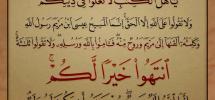 يَٰٓأَهْلَ ٱلْكِتَٰبِ لَا تَغْلُوا۟ فِى دِينِكُمْ
وَلَا تَقُولُوا۟ عَلَى ٱللَّهِ إِلَّا ٱلْحَقَّ إِنَّمَا ٱلْمَسِيحُ عِيسَى ٱبْنُ مَرْيَمَ رَسُولُ ٱللَّهِ
وَكَلِمَتُهُۥٓ أَلْقَىٰهَآ إِلَىٰ مَرْيَمَ وَرُوحٌ مِّنْهُ فَـَٔامِنُوا۟ بِٱللَّهِ وَرُسُلِهِۦ وَلَا تَقُولُوا۟ ثَلَٰثَةٌ
ٱنتَهُوا۟ خَيْرًا لَّكُمْ